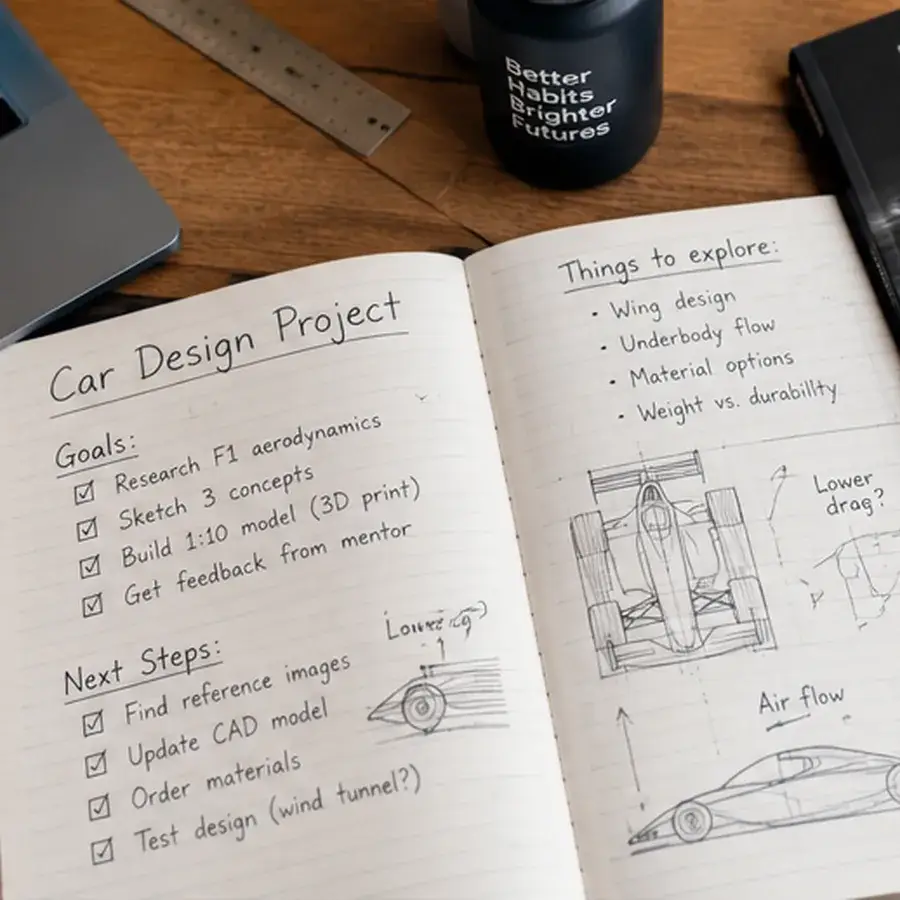 Better
Habits
Brighter
Futures
Car Design Project
Goals:
Research F1 aerodynamics
Sketch 3 concepts
Build 1:10 model (3D print)
Get feedback from mentor
Next Steps:
Find reference images
Update CAD model
Order materials
Test design (wind tunnel?)
Things to explore:
Wing design
Underbody flow
Material options
Weight vs. durabillty
Lower
drag?
Air flow